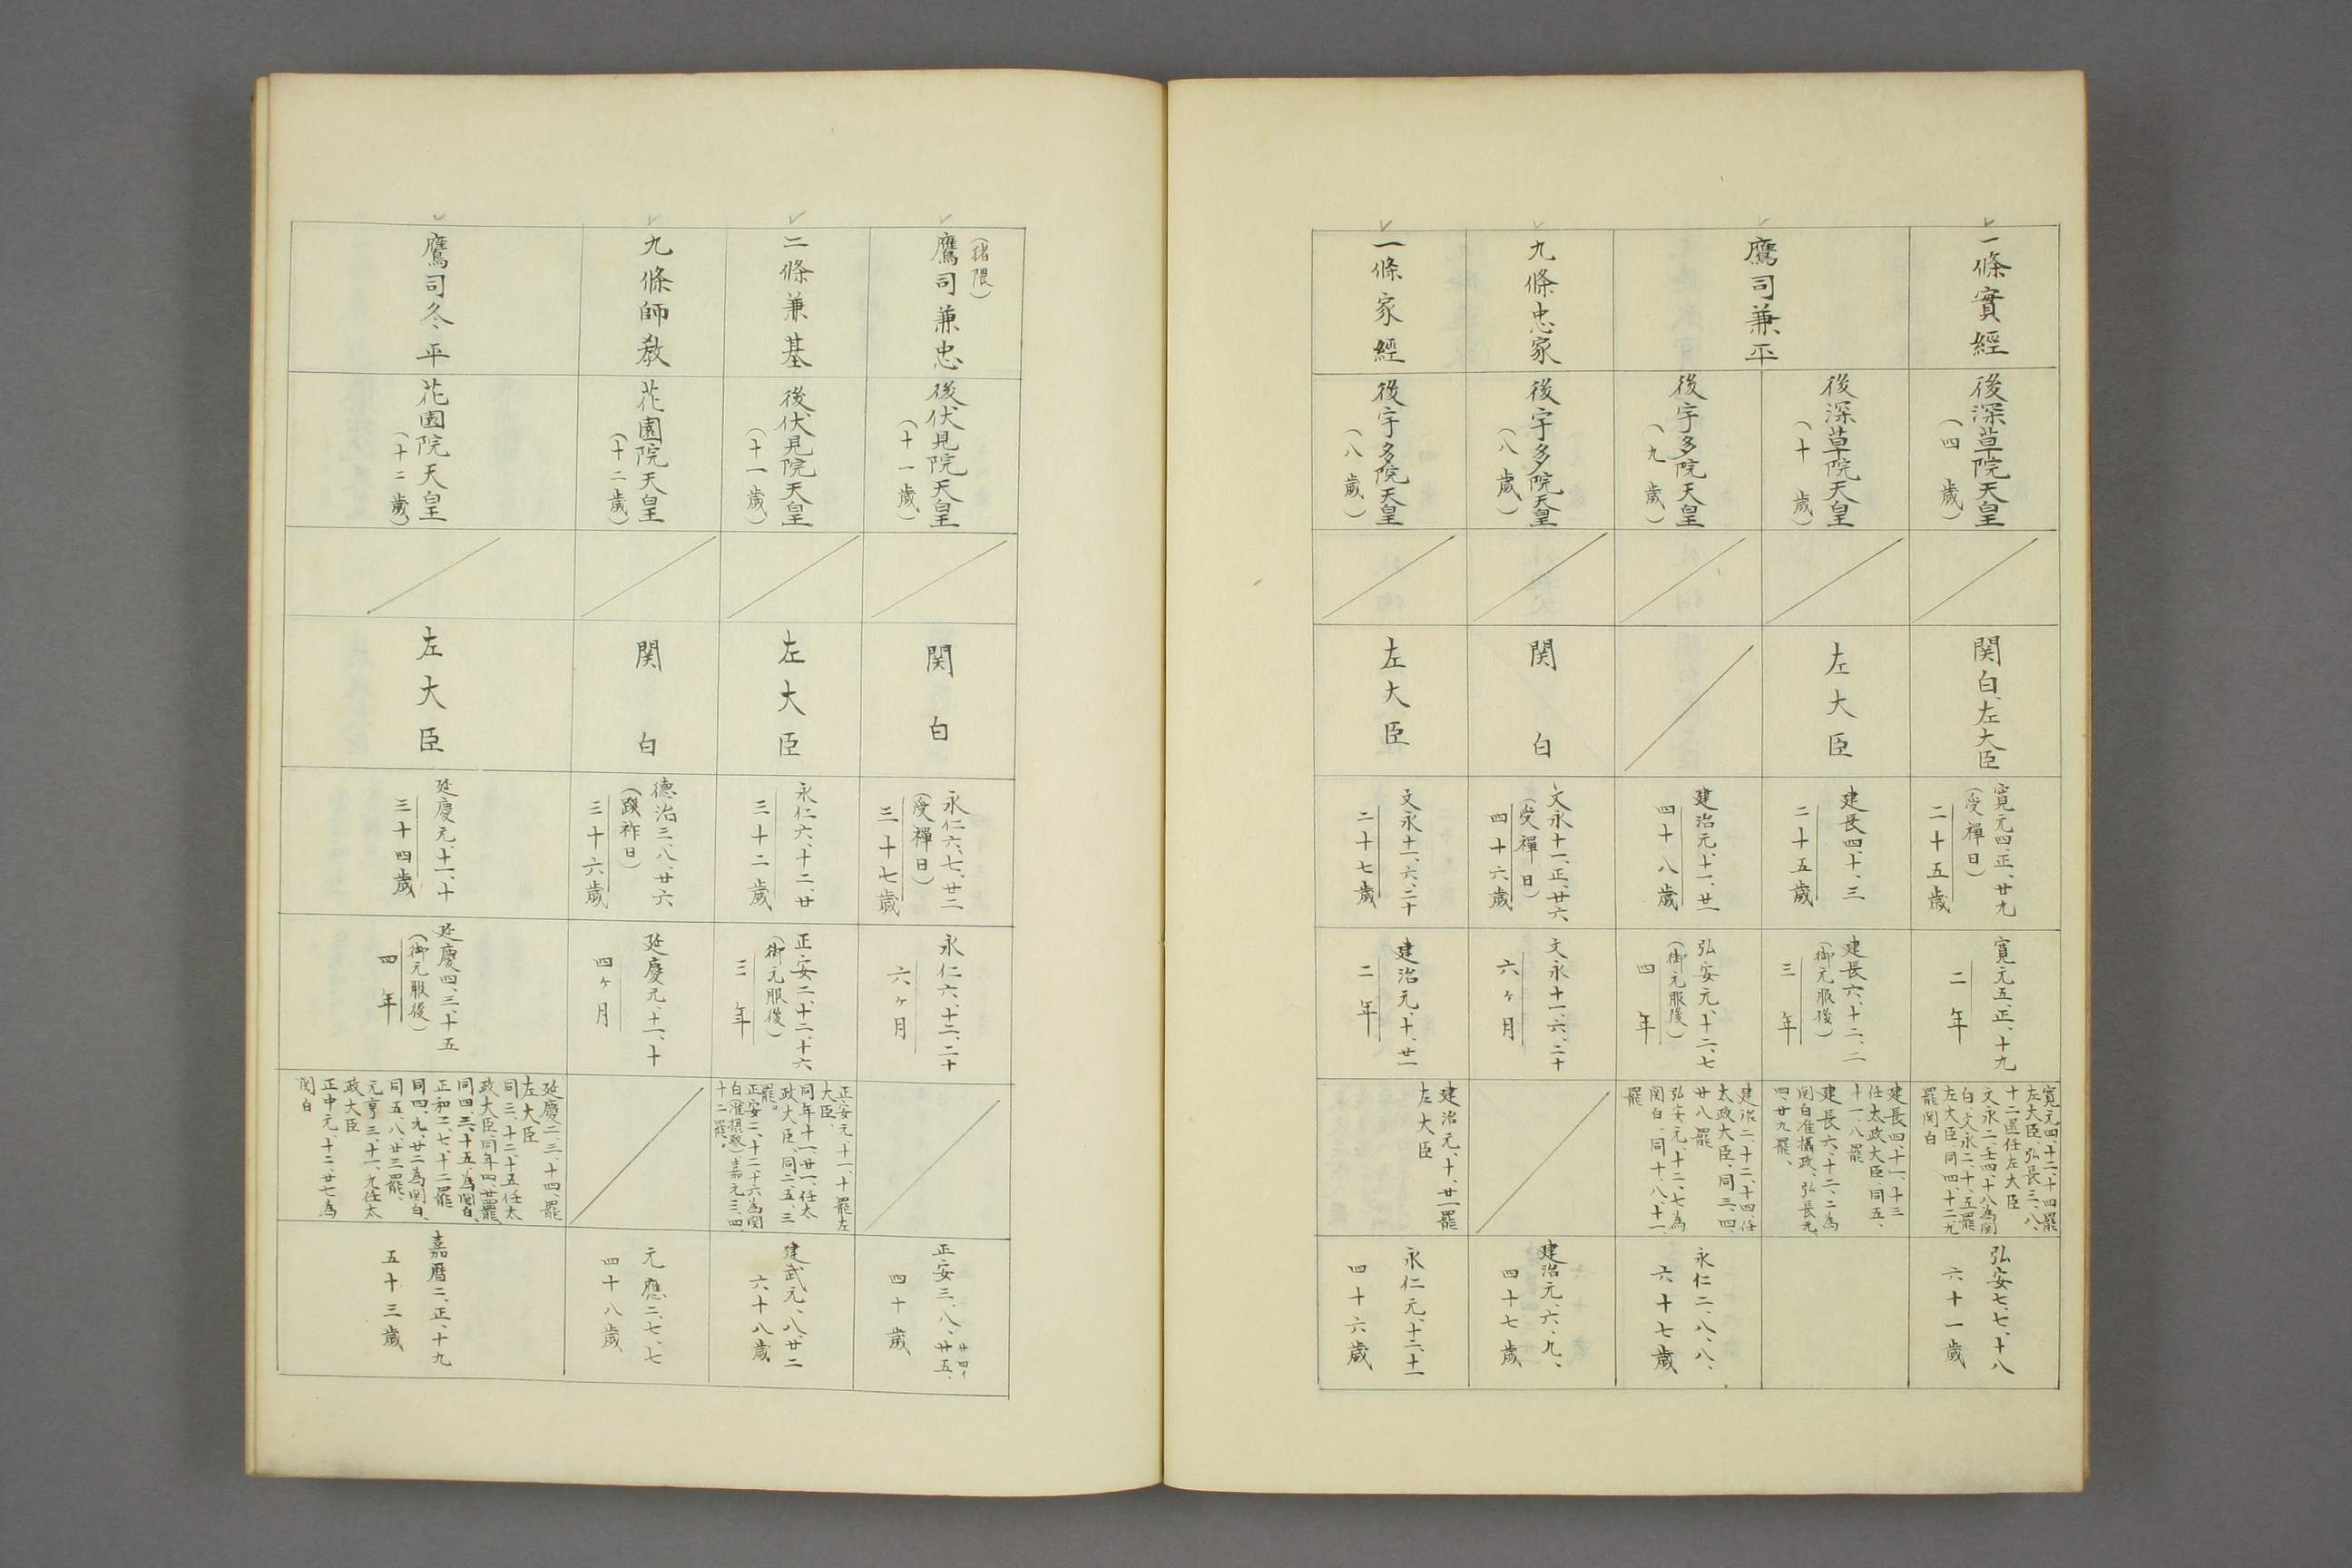 一條實經
後深草院天皇
（四歲）
関白、左大臣
寛元四、正、廿九
（受禪日）
二十五歳
寛元五、正、十九
二年
寛元四、十二、十四罷
左大臣、弘長三、八、
十二還任左大臣
文永二、壬四、十八為関
白、文永二、十、五罷
左大臣、同四、十二、九
罷関白
弘安七、七、十八
六十一歳
鷹司兼平
後深草院天皇
（十歳）
左大臣
建長四、十、三
二十五歳
建長六、十二、二
（御元服後）
三年
建長四、十一、十三
任太政大臣、同五、
十一、八罷
建長六、十二、二為
関白准攝政、弘長元、
四、廿九罷、
後宇多院天皇
（九歳）
建治元、十一、廿一
四十八歳
弘安元、十二、七
（御元服後）
四年
建治二、十二、十四、任
太政大臣、同三、四、
廿八罷
弘安元、十二、七為
関白、同十、八、十一、
罷
永仁二、八、八、
六十七歳
九條忠家
後宇多院天皇
（八歳）
関白
文永十一、正、廿六
（受禪日）
四十六歳
文永十一、六、二十
六ヶ月
建治元、六、九、
四十七歳
一條家經
後宇多院天皇
（八歳）
左大臣
文永十一、六、二十
二十七歳
建治元、十、廿一
二年
建治元、十、廿一罷
左大臣
永仁元、十二、十一
四十六歳
（猪隈）
鷹司兼忠
後伏見院天皇
（十一歳）
関白
永仁六、七、廿二
（受禪日）
三十七歳
永仁六、十二、二十
六ヶ月
正安三、八、廿五、
廿四イ
四十歳
二條兼基
後伏見院天皇
（十一歳）
左大臣
永仁六、十二、廿
三十二歳
正安二、十二、十六
（御元服後）
三年
正安元、十一、十罷左
大臣、
同年十一、廿一、任太
政大臣、同二、五、三
罷。
正安二、十二、十六為関
白（准摂政）嘉元三、四、
十二罷。
建武元、八、廿二
六十八歳
九條師教
花園院天皇
（十二歳）
関白
德治三、八、廿六
（踐祚日）
三十六歳
延慶元、十一、十
四ヶ月
元應二、七、七
四十八歳
鷹司冬平
花園院天皇
（十二歳）
左大臣
延慶元、十一、十
三十四歳
延慶四、三、十五
（御元服後）
四年
延慶二、三、十四、罷
左大臣
同三、十二、十五任太
政大臣、同年四、廿罷、
同四、三、十五、為関白、
正和二、七、十二罷
同四、九、廿二為関白、
同五、八、廿三罷、
元亨三、十一、九任太
政大臣
正中元、十二、廿七為
関白
嘉曆二、正、十九
五十三歳